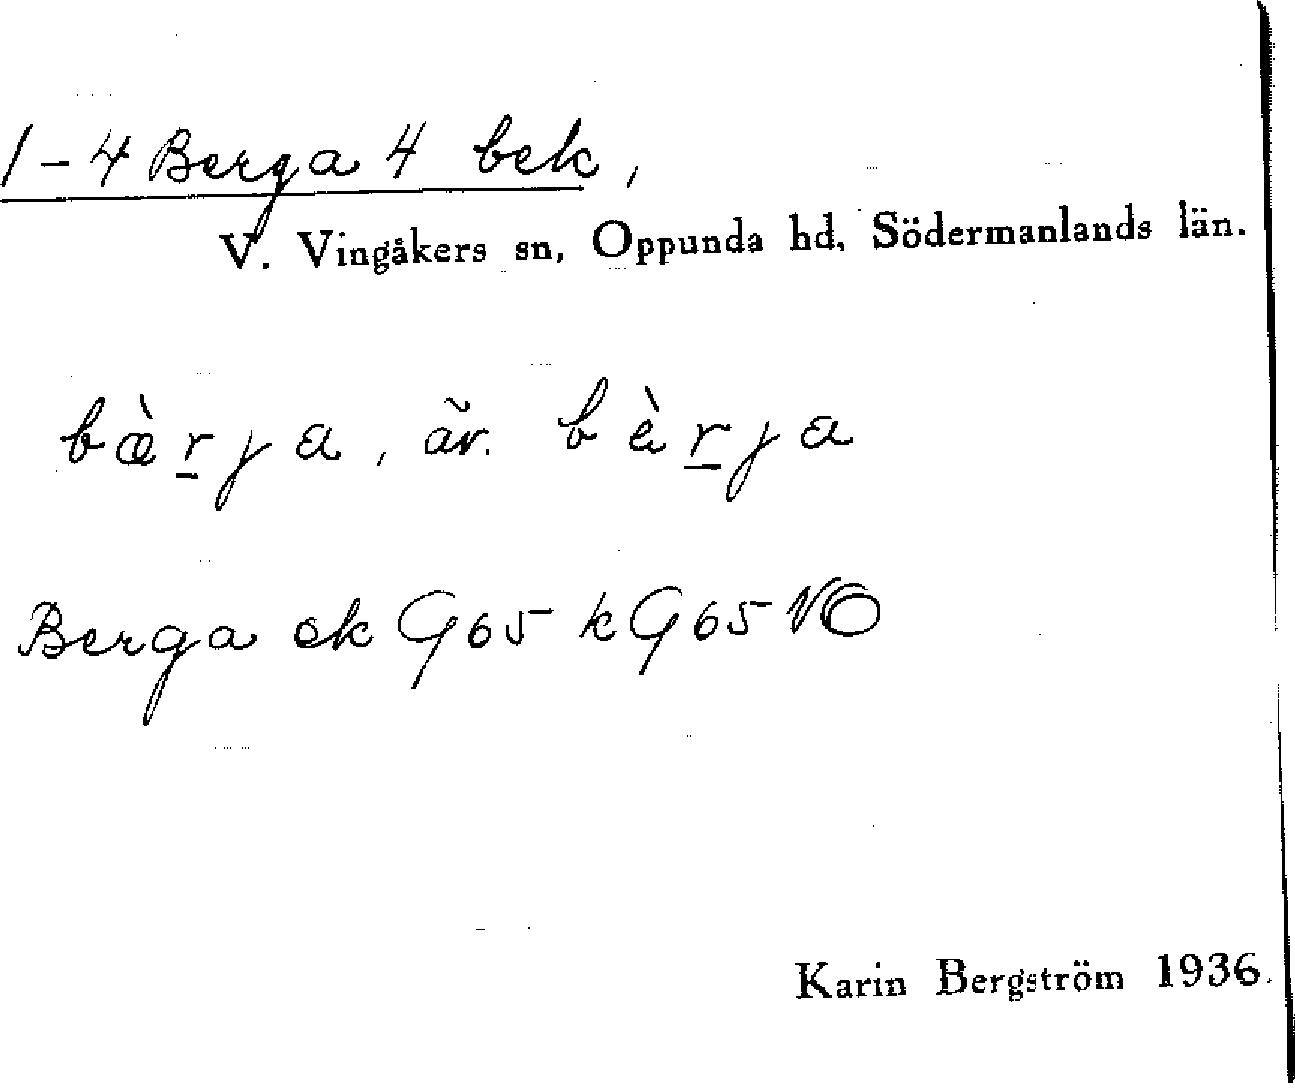 1-4 Berga 4 bek,
V. Vingåkers sn, Oppunda hd, Södermanlands län.
bæ̀r̲ja, äv. bèr̲ja
Berga ek G65 k G65 NO
Karin Bergström 1936.